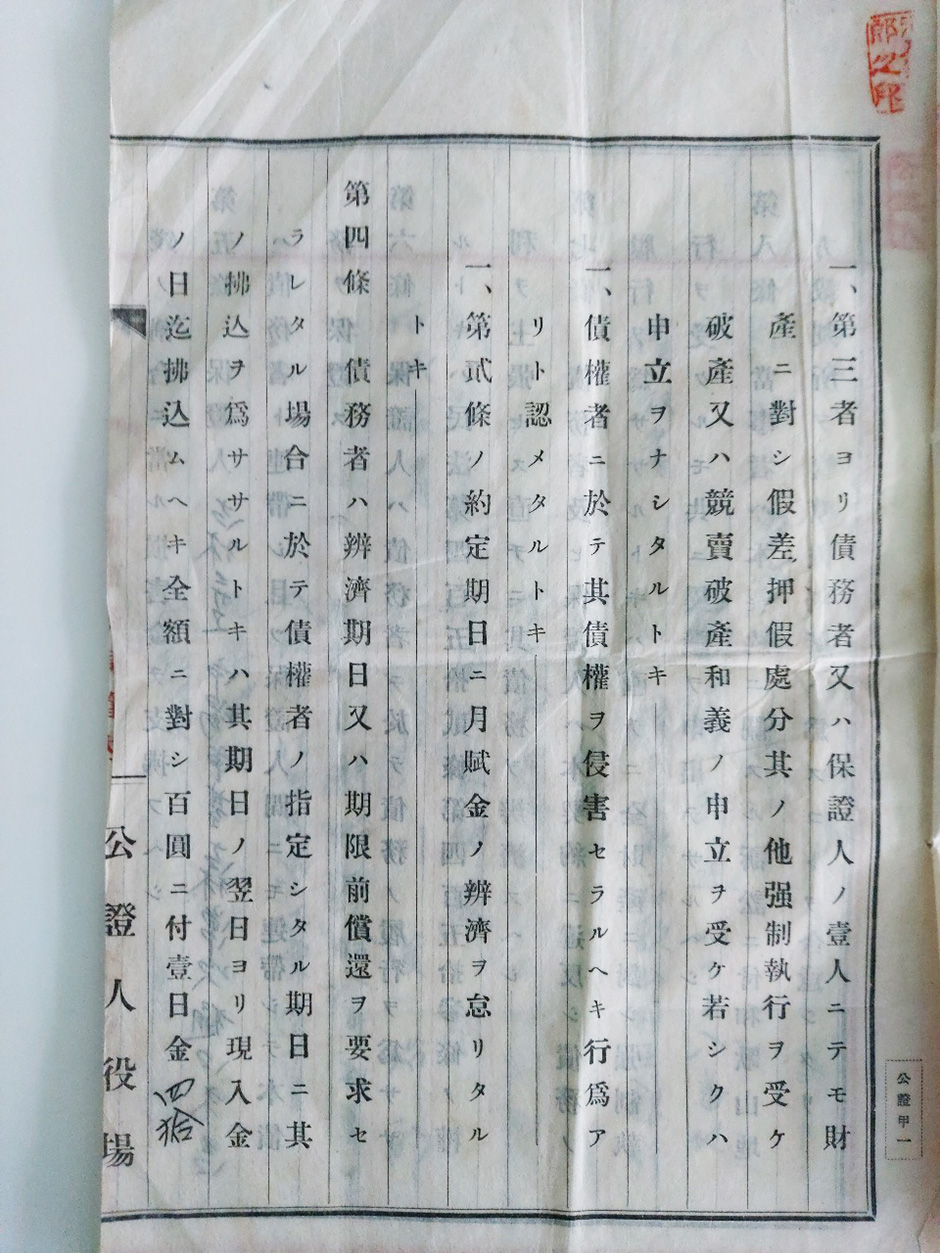 郎之印
一、第三者ヨリ債務者又ハ保證人ノ壹人ニテモ財
產ニ對シ假差押假處分其ノ他强制執行ヲ受ケ
破產又ハ競賣破產和義ノ申立ヲ受ケ若シクハ
申立ヲナシタルトキ
一、債權者ニ於テ其債權ヲ侵害セラルヘキ行爲ア
リト認メタルトキ
一、第貳條ノ約定期日ニ月賦金ノ辨濟ヲ怠リタル
トキ
第四條 債務者ハ辨濟期日又ハ期限前償還ヲ要求セ
ラレタル場合ニ於テ債權者ノ指定シタル期日ニ其
ノ拂込ヲ爲ササルトキハ其期日ノ翌日ヨリ現入金
ノ日迄拂込ムヘキ全額ニ對シ百圓ニ付壹日金四拾
公證人役場
公證甲一